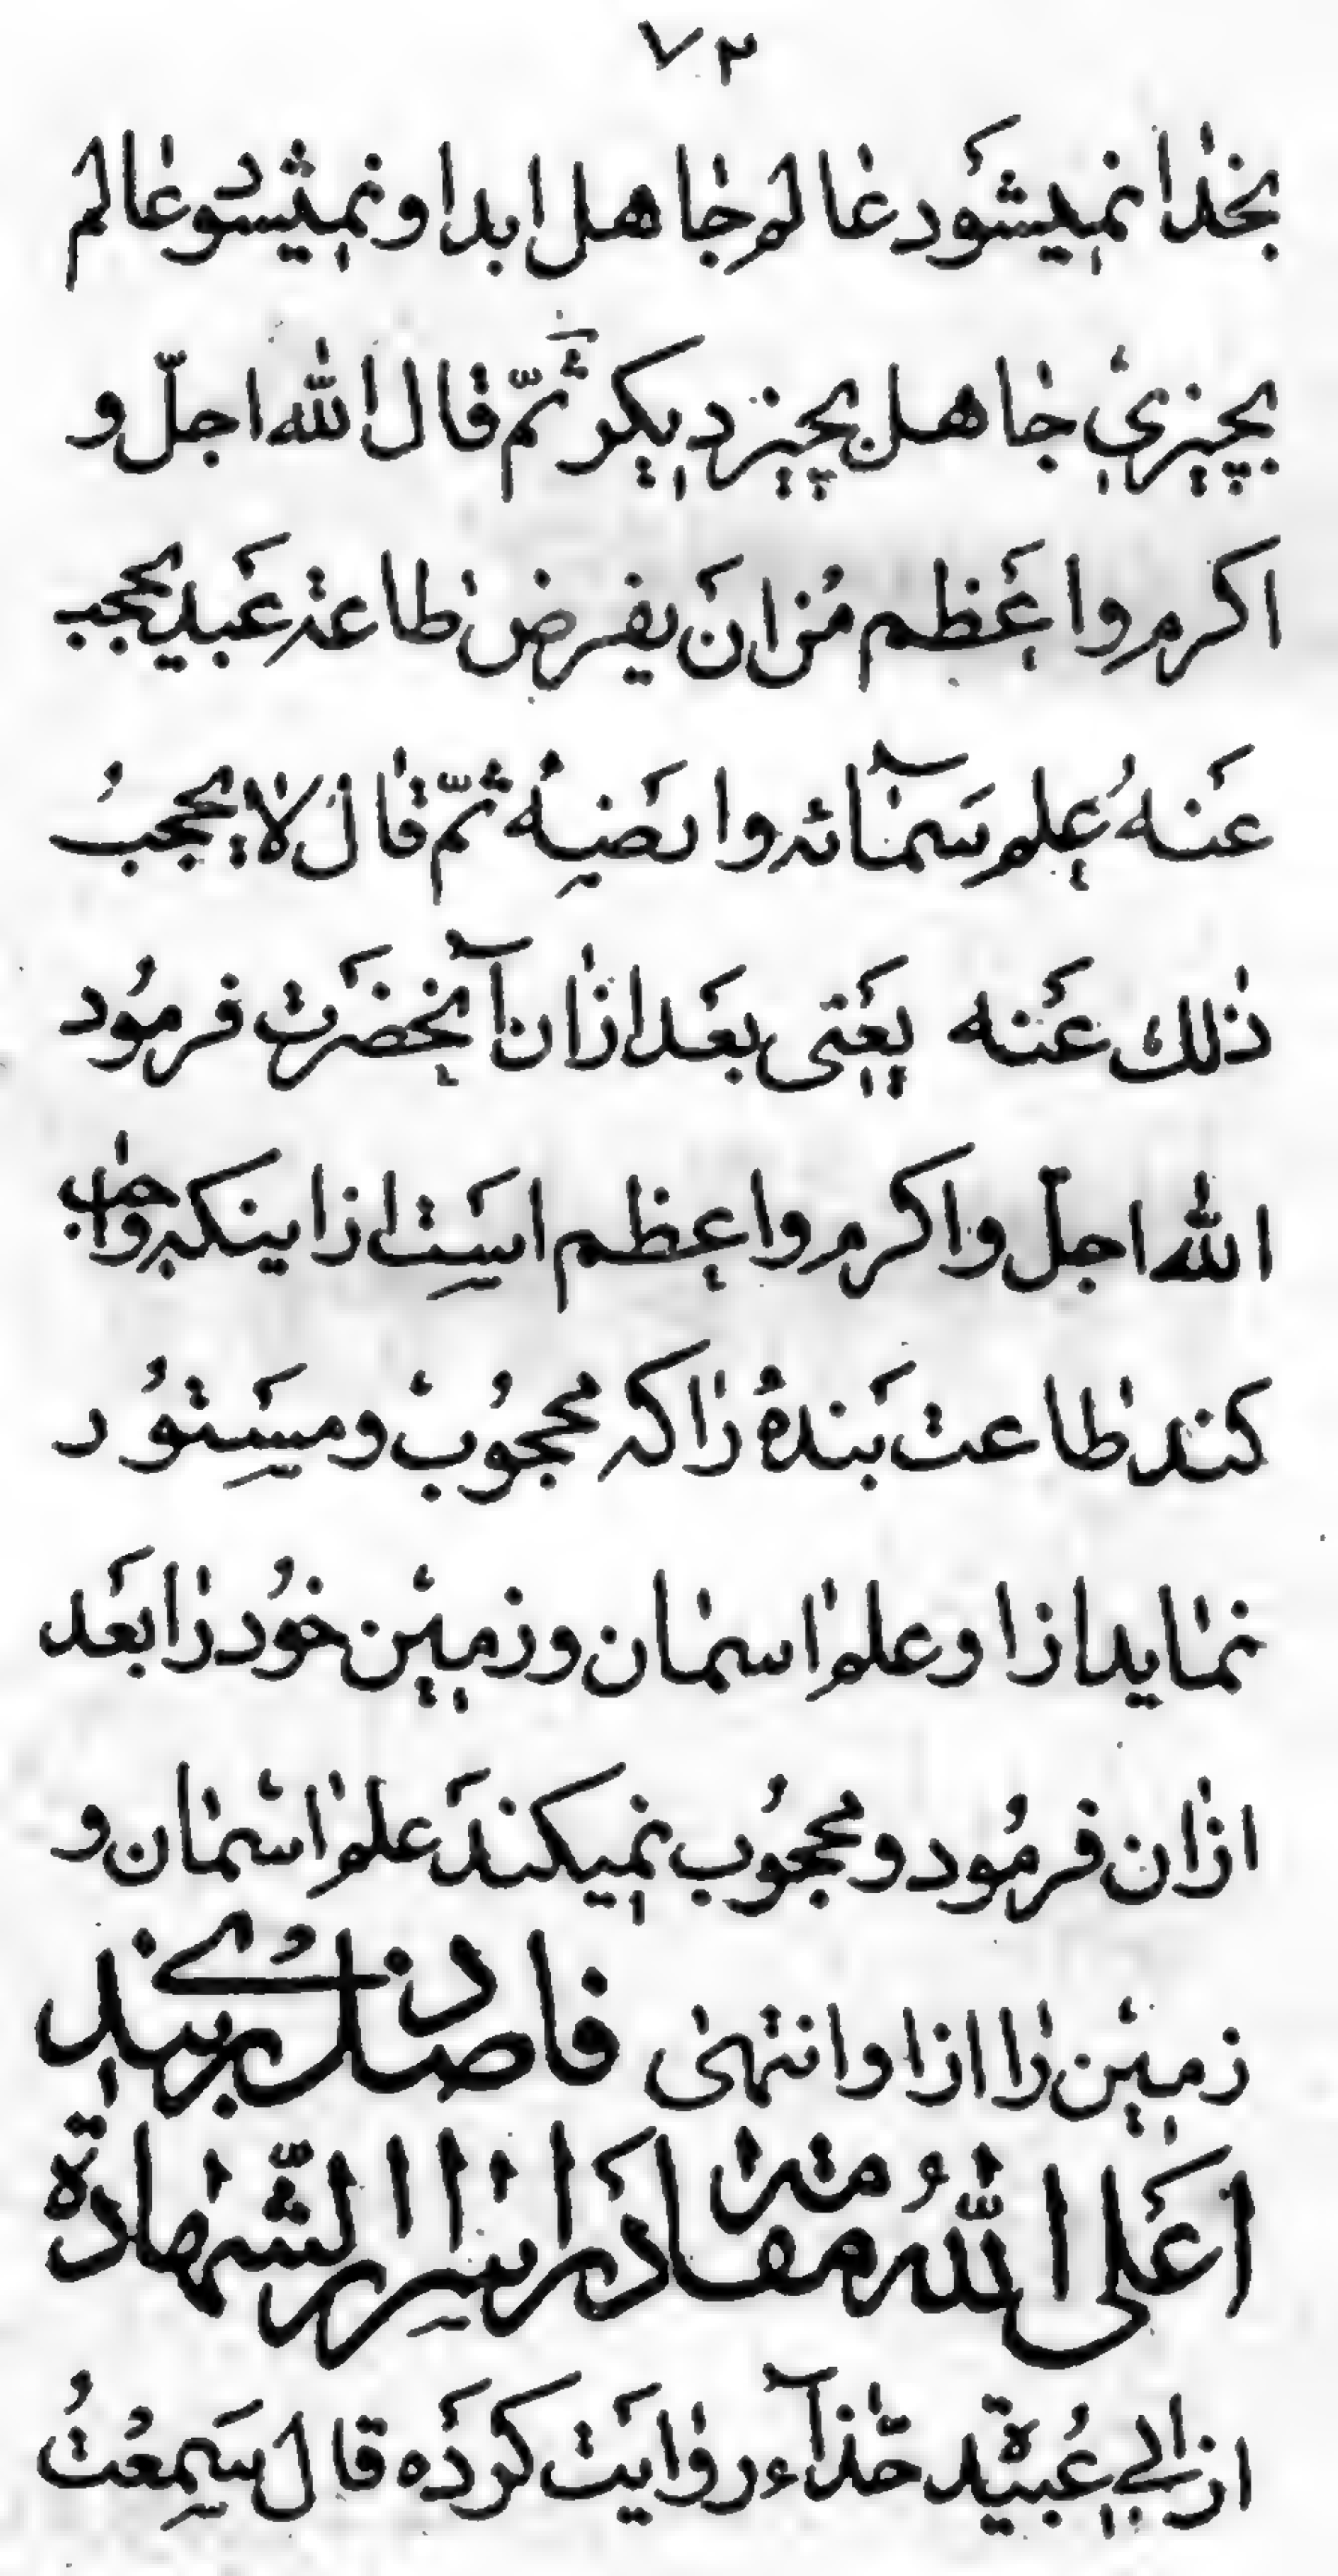 ۷۲
بخدا نمیشود عالم جاهل ابدا و نمیشود عالم
بچیزی جاهل بچیز دیکر ثمّ قال الله اجلّ و
اکرم و اعظم من ان یفرض طاعة عبد یحجب
عنهُ علم سمآئه و ارضه ثمّ قال لا یحجبُ
ذلك عنه یعنی بعد ازان آنحضرت فرمُود
الله اجلّ و اکرم و اعظم است از اینکه واجب
کند طاعت بندهٔ را که محجُوب و مستوُر
نماید از او علم اسمان و زمین خوُد را بعد
ازان فرمُود و محجُوب نمیکند علم اسمان و
زمین را از او انتهی فاضل دربندی
اعلی اللهُ مقامه در اسرار الشّهادة
از ابی عُبیدة حذّآء روایت کرده قال سَمِعْتُ